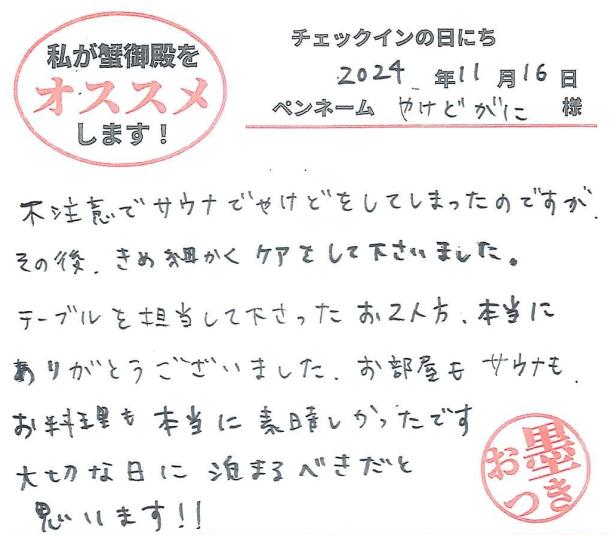 私が蟹御殿を
オススメ
します！
チェックインの日にち
2024年11月16日
ペンネーム やけどがに 様
不注意でサウナでやけどをしてしまったのですが、
その後、きめ細かくケアをして下さいました。
テーブルを担当して下さったお2人方、本当に
ありがとうございました、お部屋もサウナも、
お料理も本当に素晴しかったです
大切な日に泊まるべきだと
思います!!
お墨
つき